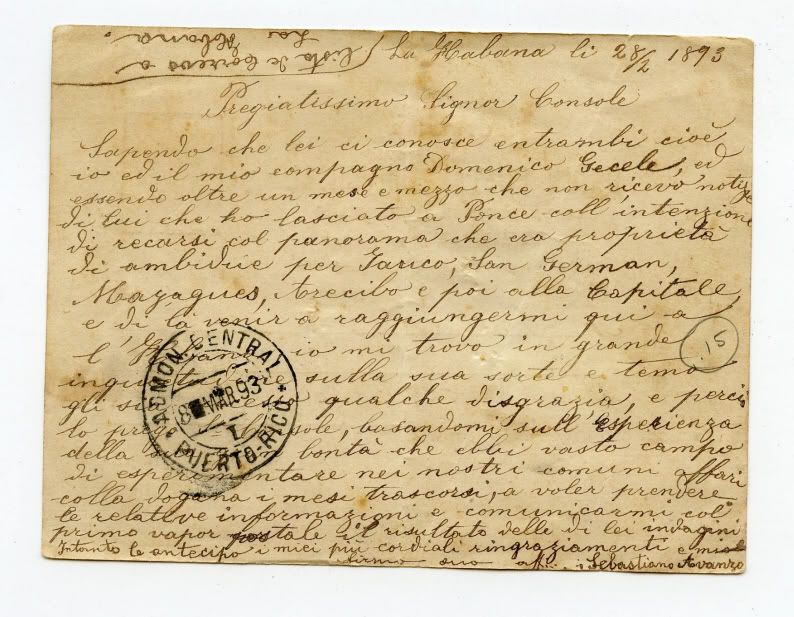 Lista de Correos a
La Habana.
La Habana li 28/2 1893
Pregiatissimo Signor Console
Sapendo che lei ci conosce entrambi cioè
io ed il mio compagno Domenico Gecele, ed
essendo oltre un mese e mezzo che non ricevo notize
di lui che ho lasciato a Ponce coll' intenzione
di recarsi col panorama che era proprietà
di ambidue per Jauco, San German,
Mayagues, Arecibo e poi alla Capitale,
e di là venir a raggiungermi qui a
l' io mi trovo in grande
sulla sua sorte e temo
gli qualche disgrazia, e perciò
lo basandomi sull' Esperienza
della bontà che ebbi vasto campo
di esperimentare nei nostri comuni affari
colla dogana i mesi trascorsi, a voler prendere
le relative informazioni e comunicarmi col
primo vapor postale il risultato delle di lei indagini
Intanto le antecipo i miei più cordiali ringraziamenti e mi
firmo suo aff. Sebastiano Avanzo
15
ADMON. CENTRAL
8 MAR. 93
T.
PUERTO-RICO